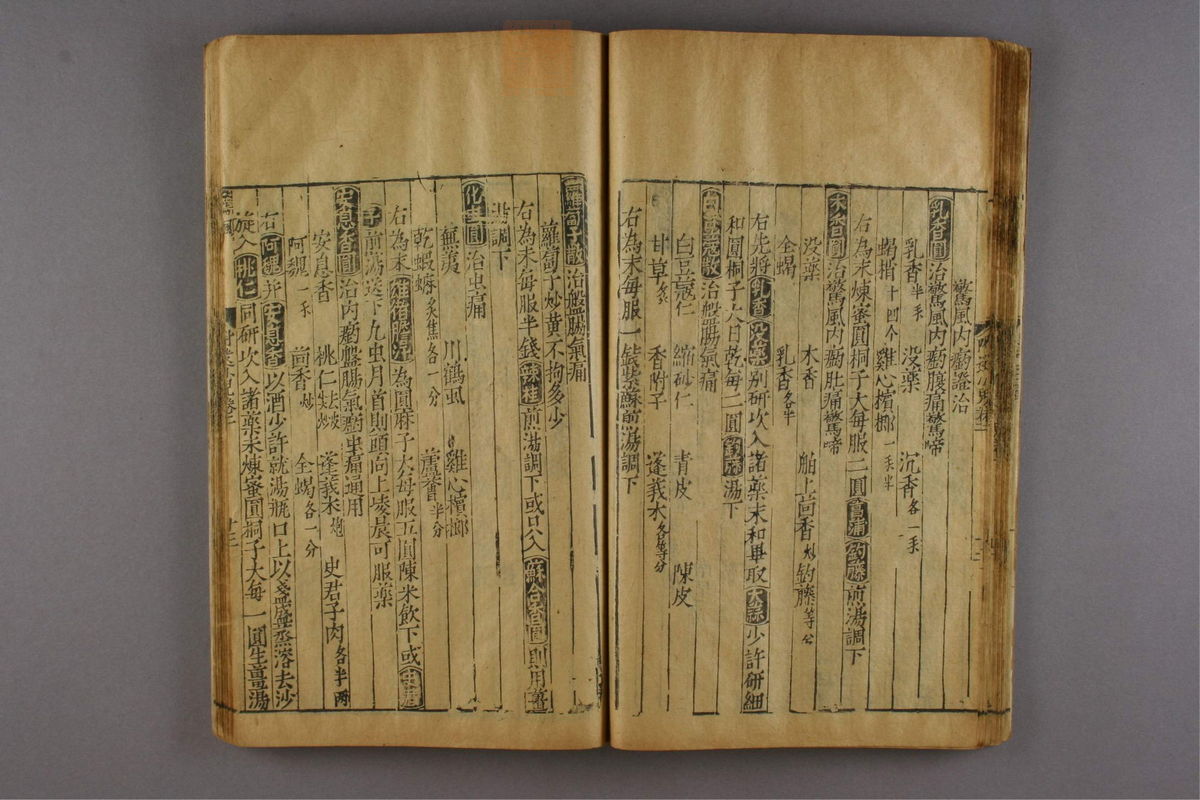 驚風內瘹證治
乳香圓治驚風內瘹腹痛驚啼
乳香半錢 沒藥 沉香各一錢
蝎梢十四个 雞心檳榔一錢半
右為末煉蜜圓桐子大每服二圓菖蒲釣藤煎湯調下
木香圓治驚風內瘹肚痛驚啼
沒藥 木香 舶上茴香炒 釣藤等分
全蝎 乳香各半
右先將乳香沒藥別研次入諸藥末和畢取大蒜少許研細
和圓桐子大日乾每二圓釣藤湯下
白豆蔻散治盤腸氣痛
白豆蔻仁 縮砂仁 青皮 陳皮
甘草炙 香附子 蓬莪朮各等分
右為末每服一錢紫蘇煎湯調下
蘿蔔子散治盤腸氣痛
蘿蔔子炒黃不拘多少
右為末每服半錢辣桂煎湯調下或只入蘇合香圓則用薑
湯調下
化虫圓治虫痛
蕪荑 川鶴虱 雞心檳榔
乾蝦蟆炙焦各一分 蘆薈半分
右為末雄猪膽汁為圓麻子大每服五圓陳米飲下或史君
子煎湯送下凡虫月首則頭向上凌晨可服藥
安息香圓治內瘹盤腸氣瘹虫痛通用
安息香 桃仁去皮炒 蓬莪朮炮 史君子肉各半兩
阿魏一錢 茴香炒 全蝎各一分
右阿魏并安息香以酒少許就湯瓶口上以盞盛蒸溶去沙
旋入桃仁同研次入諸藥末煉蜜圓桐子大每一圓生薑湯